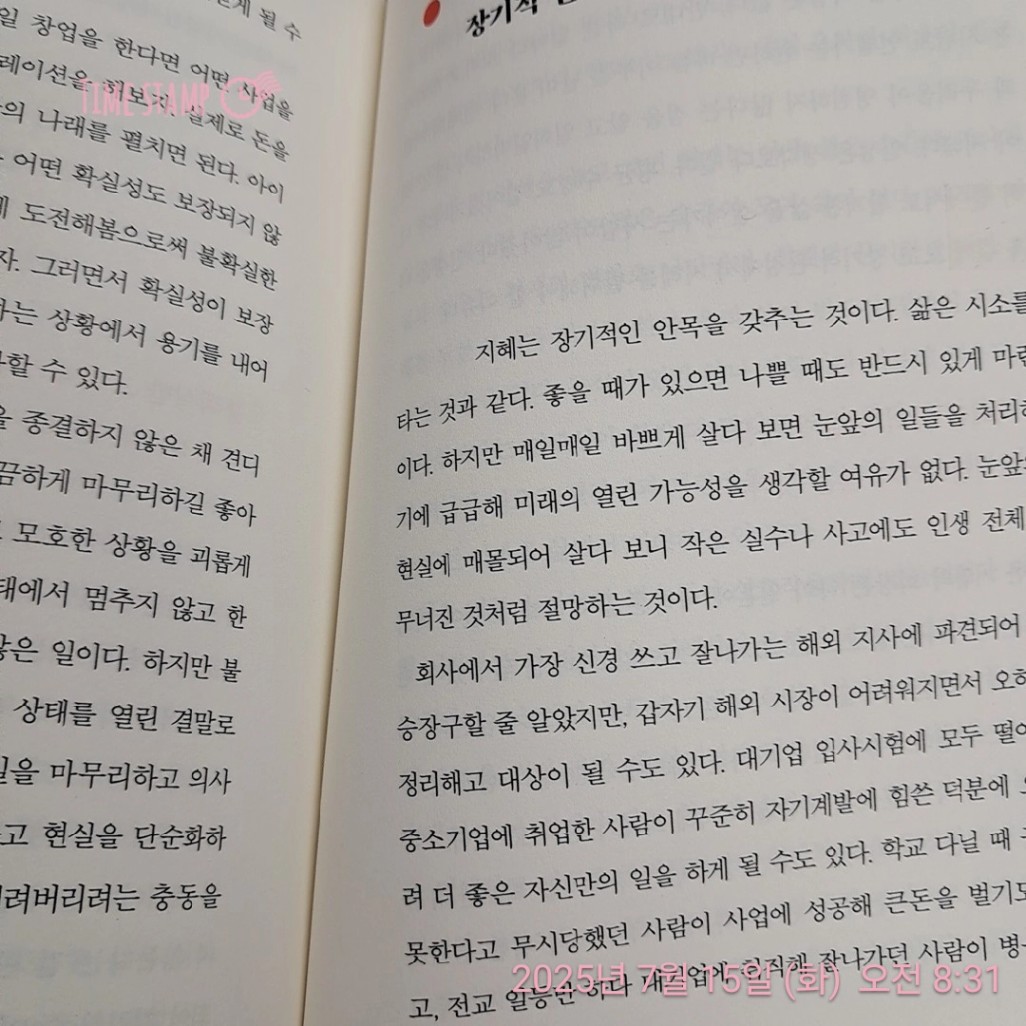 게 될 수
일 창업을 한다면 어떤 사업을
레이션을 해보자. 실제로 돈을
의 나래를 펼치면 된다. 아이
어떤 확실성도 보장되지 않
도전해봄으로써 불확실한
자. 그러면서 확실성이 보장
는 상황에서 용기를 내어
할 수 있다.
을 종결하지 않은 채 견디
끔하게 마무리하길 좋아
모호한 상황을 괴롭게
태에서 멈추지 않고 한
않은 일이다. 하지만 불
상태를 열린 결말로
일을 마무리하고 의사
고 현실을 단순화하
려버리려는 충동을
TIME STAMP
장기적
지혜는 장기적인 안목을 갖추는 것이다. 삶은 시소를
타는 것과 같다. 좋을 때가 있으면 나쁠 때도 반드시 있게 마련
이다. 하지만 매일매일 바쁘게 살다 보면 눈앞의 일들을 처리하
기에 급급해 미래의 열린 가능성을 생각할 여유가 없다. 눈앞의
현실에 매몰되어 살다 보니 작은 실수나 사고에도 인생 전체
무너진 것처럼 절망하는 것이다.
회사에서 가장 신경 쓰고 잘나가는 해외 지사에 파견되어
승장구할 줄 알았지만, 갑자기 해외 시장이 어려워지면서 오히
정리해고 대상이 될 수도 있다. 대기업 입사시험에 모두 떨어
중소기업에 취업한 사람이 꾸준히 자기계발에 힘쓴 덕분에 오
려 더 좋은 자신만의 일을 하게 될 수도 있다. 학교 다닐 때
못한다고 무시당했던 사람이 사업에 성공해 큰돈을 벌기도
고, 전교 일등만 하다 대기업에 취직해 잘나가던 사람이 병
2025년 7월 15일 (화) 오전 8:31